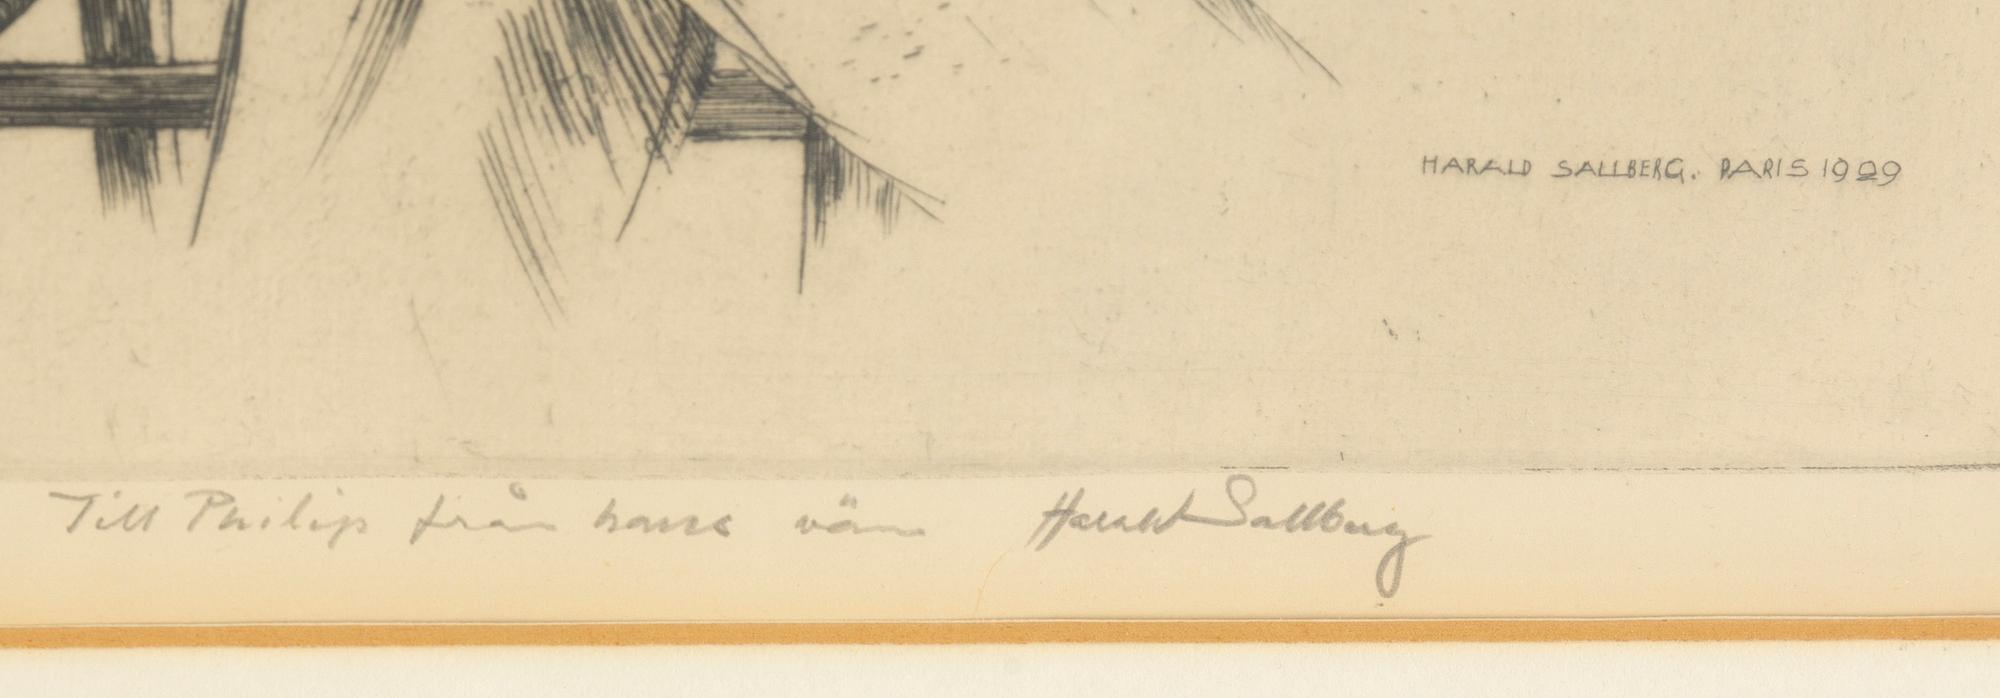 HARALD SALLBERG. PARIS 1929
Till Philip från hans vän Harald Sallberg